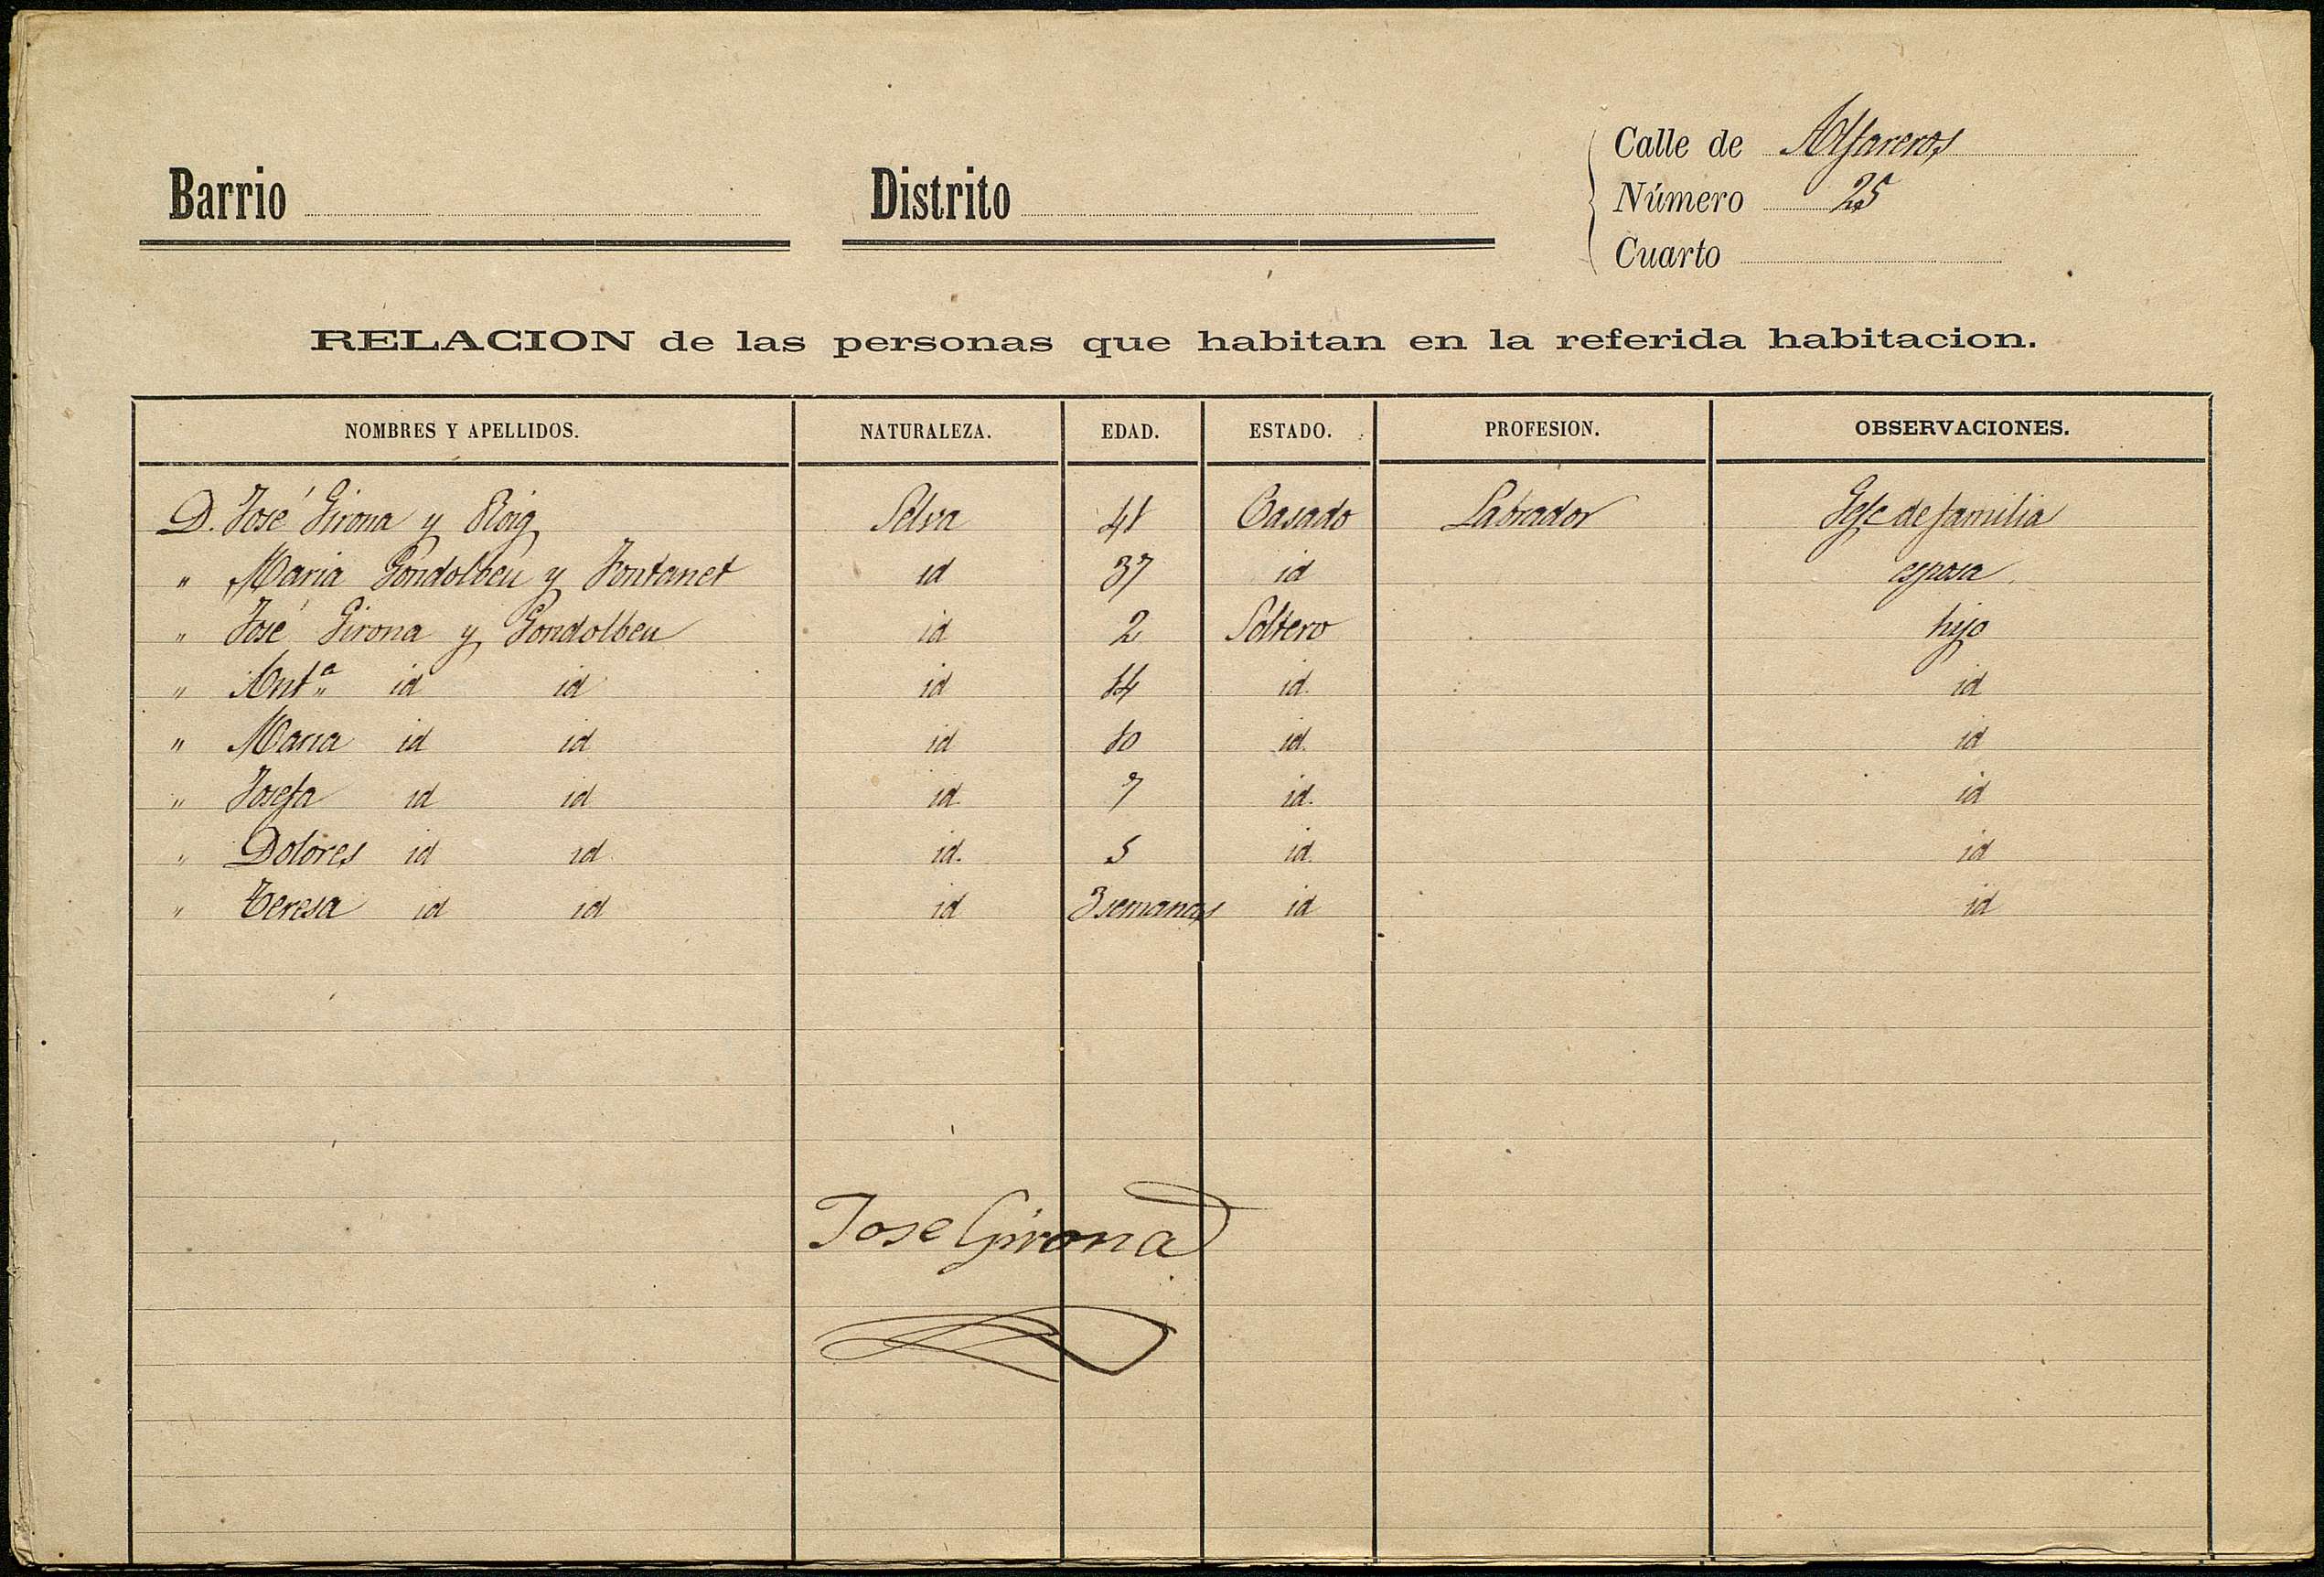 Calle de Alfareros
Barrio Distrito Número 25
Cuarto
RELACION de las personas que habitan en la referida habitacion.
NOMBRES Y APELLIDOS. NATURALEZA. EDAD. ESTADO. PROFESION. OBSERVACIONES.
D. José Girona y Roig Selva 41 Casado Labrador Gefe de familia
" Maria Gondolbeu y Fontanet id 37 id esposa
" José Girona y Gondolbeu id 2 Soltero hijo
" Antª id id id 14 id. id
" Maria id id id 10 id. id
" Josefa id id id. 7 id. id
" Dolores id id. id. 5 id. id
" Teresa id id id 3 semanas id id
Jose Girona